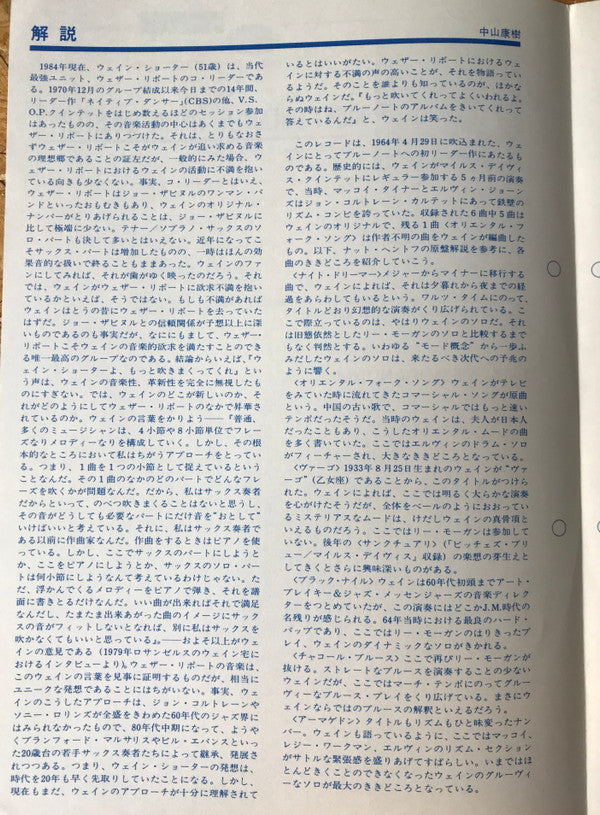 解説
中山康樹
1984年現在、ウェイン・ショーター（51歳）は、当代
最強ユニット、ウェザー・リポートのコ・リーダーであ
る。1970年12月のグループ結成以来今日までの14年間、
リーダー作『ネイティブ・ダンサー』(CBS)の他、V.S.
O.P.クインテットをはじめ数えるほどのセッション参加
はあったものの、その音楽活動の中心はあくまでもウェ
ザー・リポートにありつづけた。それは、とりもなおさ
ずウェザー・リポートこそがウェインが追い求める音楽
の理想郷であることの証左だが、一般的にみた場合、ウ
ェザー・リポートにおけるウェインの活動に不満を抱い
ている向きも少なくない。事実、コ・リーダーとはいえ、
ウェザー・リポートはジョー・ザビヌルのワンマン・バ
ンドといったおもむきもあり、ウェインのオリジナル・
ナンバーがとりあげられることは、ジョー・ザビヌルに
比して極端に少ない。テナー／ソプラノ・サックスのソ
ロ・パートも決して多いとはいえない。近年になってこ
そサックス・パートは増加したものの、一時はほんの効
果音的な扱いで終ることもままあった。ウェインのファ
ンにしてみれば、それが歯がゆく映ったのだろう。それ
では、ウェインがウェザー・リポートに欲求不満を抱い
ているかといえば、そうではない。もしも不満があれば
ウェインはとうの昔にウェザー・リポートを去っていた
はずだ。ジョー・ザビヌルとの信頼関係が予想以上に深
いものであるのも事実だが、なににもまして、ウェザー・
リポートでのウェインの音楽的欲求を満たすことのでき
る唯一最高のグループなのである。結論からいえば、『ウ
ェイン・ショーターよ、もっと吹きまくってくれ』とい
う声は、ウェインの音楽性、革新性を完全に無視したも
のにすぎない。では、ウェインのどこが新しいのか、そ
れがどのようにしてウェザー・リポートのなかで昇華さ
れているのか。ウェインの言葉をかりよう――『普通、
多くのミュージシャンは、4小節や8小節単位でフレー
ズなりメロディーなりを構成していく。しかし、その根
本的なところにおいて私はちがうアプローチをとってい
る。つまり、1曲を1つの小節として捉えているという
ことなんだ。その1曲のなかのどのパートでどんなフレ
ーズを吹くかが問題なんだ。だから、私はサックス奏者
だからといって、のべつ吹きまくることはないと思うし、
その音がどうしても必要なパートにだけ音を“おとして”
いけばいいと考えている。それに、私はサックス奏者で
ある以前に作曲家なんだ。作曲をするときはピアノを使
っている。しかし、ここでサックスのパートにしようと
か、ここをピアノにしようとか、サックスのソロ・パー
トは何小節にしようなんて考えているわけじゃない。た
だ、浮かんでくるメロディーをピアノで弾き、それを譜
面に書きとるだけなんだ。いい曲が出来ればそれで満足
なんだし、たまたま出来あがった曲のイメージにサック
スの音がフィットしないとなれば、別に私はサックスを
吹かなくてもいいと思っている』――およそ以上がウェ
インの意見である（1979年ロサンゼルスのウェイン宅に
おけるインタビューより）。ウェザー・リポートの音楽は、
このウェインの言葉を見事に証明するものだが、相当に
ユニークな発想であることにはちがいない。事実、ウェ
インのこうしたアプローチは、ジョン・コルトレーンや
ソニー・ロリンズが全盛をきわめた60年代のジャズ界に
はみられなかったもので、80年代中期になって、ようや
くブランフォード・マルサリスやビル・エバンスといっ
た20歳台の若手サックス奏者たちによって継承、発展さ
れつつある。つまり、ウェイン・ショーターの発想は、
時代を20年も早く先取りしていたことになる。しかし、
現在もまだ、ウェインのアプローチが十分に理解されて
いるとはいいがたい。ウェザー・リポートにおけるウェ
インに対する不満の声の高いことが、それを物語ってい
るようだ。そのことを誰よりも知っているのが、ほかな
らぬウェインだ。『もっと吹いてくれってよくいわれるよ。
その時はね、ブルーノートのアルバムをきいてくれって
答えているんだ』と、ウェインは笑った。
このレコードは、1964年4月29日に吹込まれた、ウェ
インにとってブルーノートへの初リーダー作にあたるも
のである。歴史的には、ウェインがマイルス・デイヴィ
ス・クインテットにレギュラー参加する5ヵ月前の演奏
で、当時、マッコイ・タイナーとエルヴィン・ジョーン
ズはジョン・コルトレーン・カルテットにあって鉄壁の
リズム・コンビを誇っていた。収録された6曲中5曲は
ウェインのオリジナルで、残る1曲〈オリエンタル・フ
ォーク・ソング〉は作者不明の曲をウェインが編曲した
もの。以下、ナット・ヘントフの原盤解説を参考に、各
曲のききどころを紹介していこう。
〈ナイト・ドリーマー〉メジャーからマイナーに移行する
曲で、ウェインによれば、それは夕暮れから夜までの経
過をあらわしてもいるという。ワルツ・タイムにのって、
タイトルどおり幻想的な演奏がくり広げられている。こ
こで際立っているのは、やはりウェインのソロだ。それ
は旧態依然としたリー・モーガンのソロと比較するまで
もなく判然とする。いわゆる“モード概念”から一歩ふ
みだしたウェインのソロは、来たるべき次代への予兆の
ように響く。
〈オリエンタル・フォーク・ソング〉ウェインがテレビ
をみていた時に流れてきたコマーシャル・ソングが原曲
という。中国の古い歌で、コマーシャルではもっと速い
テンポだったそうだ。当時のウェインは、夫人が日本人
だったこともあり、こうしたオリエンタル・ムードの曲
を多く書いていた。ここではエルヴィンのドラム・ソロ
がフィーチャーされ、大きなききどころとなっている。
〈ヴァーゴ〉1933年8月25日生まれのウェインが“ヴァ
ーゴ”（乙女座）であることから、このタイトルがつけら
れた。ウェインによれば、ここでは明るく大らかな演奏
を心がけたそうだが、全体をベールのようにおおってい
るミステリアスなムードは、けだしウェインの真骨頂と
いえるものだろう。ここではリー・モーガンは参加して
いない。後年の〈サンクチュアリ〉（『ビッチェズ・ブリ
ュー／マイルス・デイヴィス』収録）の楽想の芽生えと
してきくとさらに興味深いものがある。
〈ブラック・ナイル〉ウェインは60年代初頭までアート・
ブレイキー＆ジャズ・メッセンジャーズの音楽ディレク
ターをつとめていたが、この演奏にはどこかJ.M.時代の
名残りが感じられる。64年当時における最良のハード・
バップであり、ここではリー・モーガンのはりきったプ
レイ、ウェインのダイナミックなソロがきかれる。
〈チャコール・ブルース〉ここで再びリー・モーガンが
抜ける。ストレートなブルースを演奏することの少ない
ウェインだが、ここではマーチ・テンポにのってグルー
ヴィーなブルース・プレイをくり広げている。まさにウ
ェインならではのブルースの解釈といえるだろう。
〈アーマゲドン〉タイトルもリズムもひと味変ったナン
バー。ウェインも語っているように、ここではマッコイ、
レジー・ワークマン、エルヴィンのリズム・セクション
がサトルな緊張感を盛りあげてすばらしい。いまではほ
とんどきくことのできなくなったウェインのグルーヴィ
ーなソロが最大のききどころとなっている。